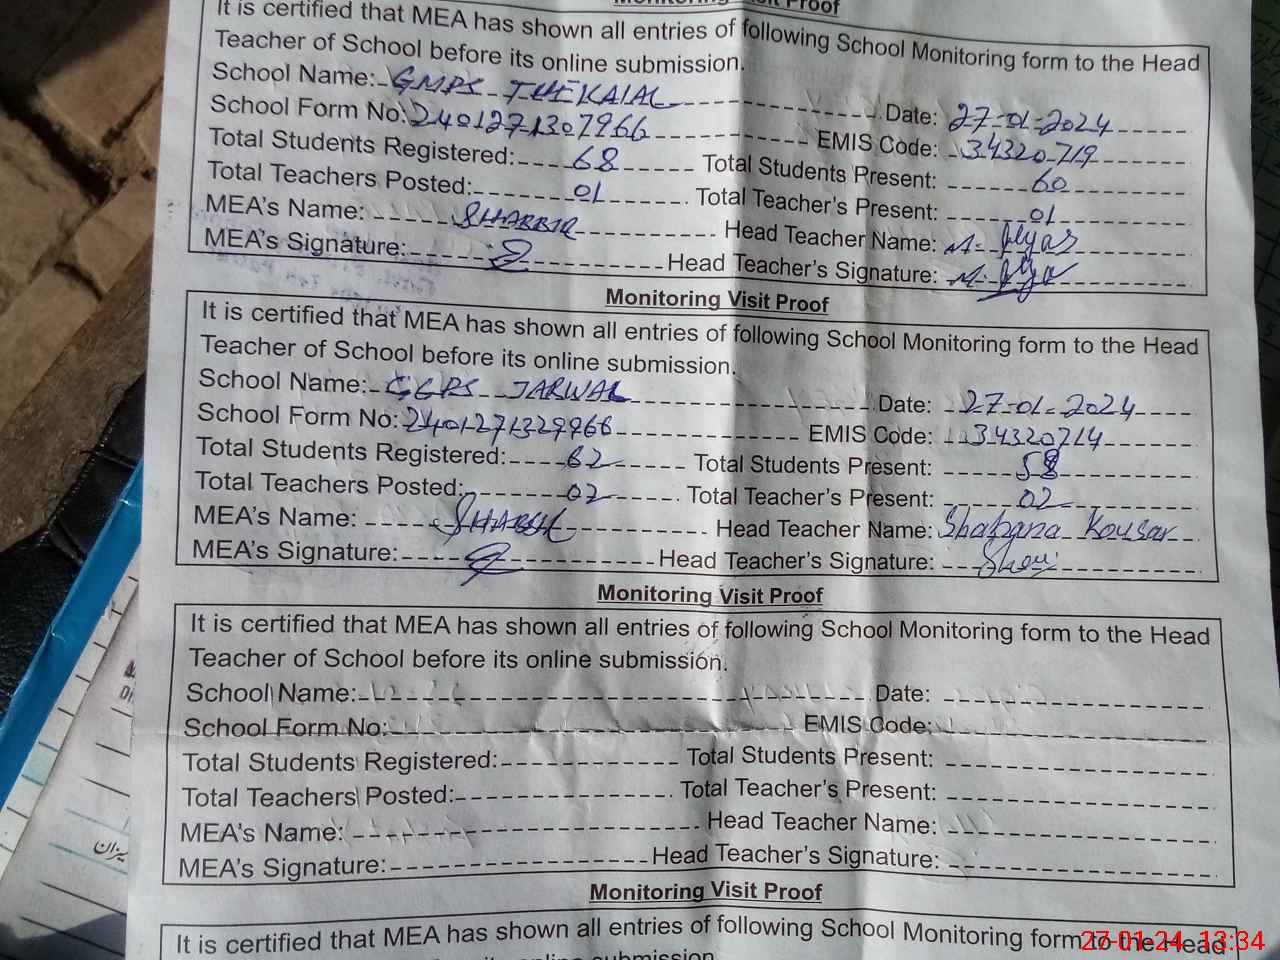 Monitoring Visit Proof
It is certified that MEA has shown all entries of following School Monitoring form to the Head
Teacher of School before its online submission.
School Name: GMPS THEKALAL Date: 27-01-2024
School Form No: 2401271307966 EMIS Code: 34320719
Total Students Registered: 68 Total Students Present: 60
Total Teachers Posted: 01 Total Teacher's Present: 01
MEA's Name: SHABBIR Head Teacher Name: M. Ilyas
MEA's Signature: Head Teacher's Signature: M. Ilya
Monitoring Visit Proof
It is certified that MEA has shown all entries of following School Monitoring form to the Head
Teacher of School before its online submission.
School Name: GGPS JARWAL Date: 27-01-2024
School Form No: 2401271329966 EMIS Code: 34320714
Total Students Registered: 62 Total Students Present: 58
Total Teachers Posted: 02 Total Teacher's Present: 02
MEA's Name: Head Teacher Name: Shabana Kousar
MEA's Signature: Head Teacher's Signature:
Monitoring Visit Proof
It is certified that MEA has shown all entries of following School Monitoring form to the Head
Teacher of School before its online submission.
School Name: Date:
School Form No: EMIS Code:
Total Students Registered: Total Students Present:
Total Teachers Posted: Total Teacher's Present:
MEA's Name: Head Teacher Name:
MEA's Signature: Head Teacher's Signature:
Monitoring Visit Proof
It is certified that MEA has shown all entries of following School Monitoring form to the Head
online submission.
27-01-24 13:34
میزان